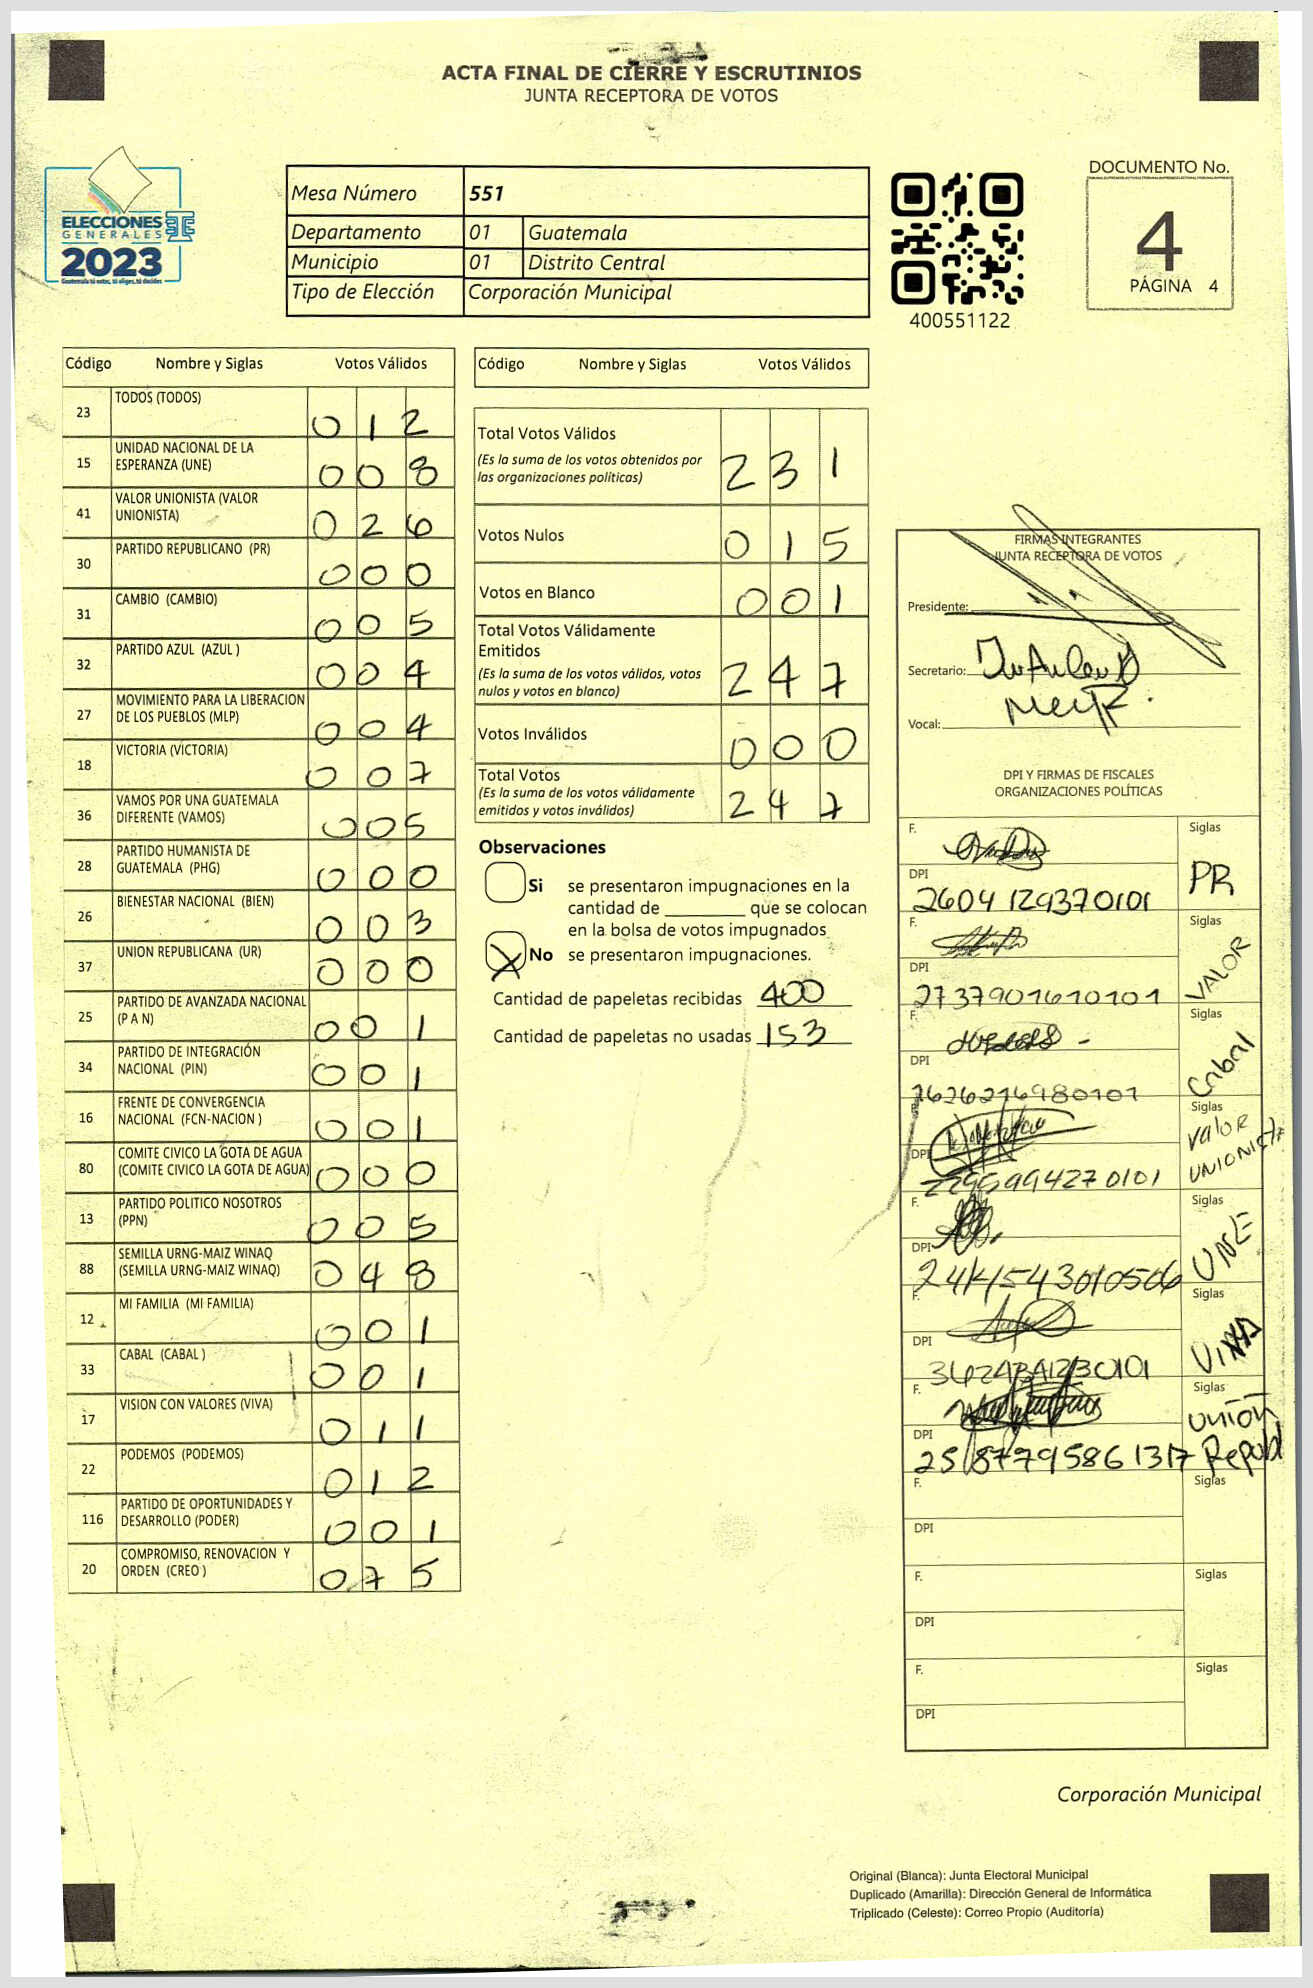 ACTA FINAL DE CIERRE Y ESCRUTINIOS
JUNTA RECEPTORA DE VOTOS
ELECCIONES
GENERALES
2023
Guatemala tú votas, tú eliges, tú decides
TSE
Mesa Número 551
Departamento 01 Guatemala
Municipio 01 Distrito Central
Tipo de Elección Corporación Municipal
400551122
DOCUMENTO No.
4
PÁGINA 4
Código Nombre y Siglas Votos Válidos
23 TODOS (TODOS) 012
15 UNIDAD NACIONAL DE LA
ESPERANZA (UNE) 008
41 VALOR UNIONISTA (VALOR
UNIONISTA) 026
30 PARTIDO REPUBLICANO (PR) 000
31 CAMBIO (CAMBIO) 005
32 PARTIDO AZUL (AZUL ) 004
27 MOVIMIENTO PARA LA LIBERACION
DE LOS PUEBLOS (MLP) 004
18 VICTORIA (VICTORIA) 007
36 VAMOS POR UNA GUATEMALA
DIFERENTE (VAMOS) 005
28 PARTIDO HUMANISTA DE
GUATEMALA (PHG) 000
26 BIENESTAR NACIONAL (BIEN) 003
37 UNION REPUBLICANA (UR) 000
25 PARTIDO DE AVANZADA NACIONAL
(P A N) 001
34 PARTIDO DE INTEGRACIÓN
NACIONAL (PIN) 001
16 FRENTE DE CONVERGENCIA
NACIONAL (FCN-NACION ) 001
80 COMITE CIVICO LA GOTA DE AGUA
(COMITE CIVICO LA GOTA DE AGUA) 000
13 PARTIDO POLITICO NOSOTROS
(PPN) 005
88 SEMILLA URNG-MAIZ WINAQ
(SEMILLA URNG-MAIZ WINAQ) 048
12 MI FAMILIA (MI FAMILIA) 001
33 CABAL (CABAL ) 001
17 VISION CON VALORES (VIVA) 011
22 PODEMOS (PODEMOS) 012
116 PARTIDO DE OPORTUNIDADES Y
DESARROLLO (PODER) 001
20 COMPROMISO, RENOVACION Y
ORDEN (CREO ) 075
Código Nombre y Siglas Votos Válidos
Total Votos Válidos
(Es la suma de los votos obtenidos por
las organizaciones políticas) 231
Votos Nulos 015
Votos en Blanco 001
Total Votos Válidamente
Emitidos
(Es la suma de los votos válidos, votos
nulos y votos en blanco) 247
Votos Inválidos 000
Total Votos
(Es la suma de los votos válidamente
emitidos y votos inválidos) 247
Observaciones
Si se presentaron impugnaciones en la
cantidad de ________ que se colocan
en la bolsa de votos impugnados
X No se presentaron impugnaciones.
Cantidad de papeletas recibidas 400
Cantidad de papeletas no usadas 153
FIRMAS INTEGRANTES
JUNTA RECEPTORA DE VOTOS
Presidente:
Secretario:
Vocal:
DPI Y FIRMAS DE FISCALES
ORGANIZACIONES POLÍTICAS
F. Siglas
PR
DPI
2604 129370101
F. Siglas
VALOR
DPI
2737901610101
F. Siglas
Cabal
DPI
2626216980101
Siglas
Valor
UNIONista
DPI
F. Siglas
UNE
DPI
F. Siglas
VIVA
DPI
F. Siglas
Unión
Republ
DPI
F. Siglas
DPI
F. Siglas
DPI
F. Siglas
DPI
Corporación Municipal
Original (Blanca): Junta Electoral Municipal
Duplicado (Amarilla): Dirección General de Informática
Triplicado (Celeste): Correo Propio (Auditoría)